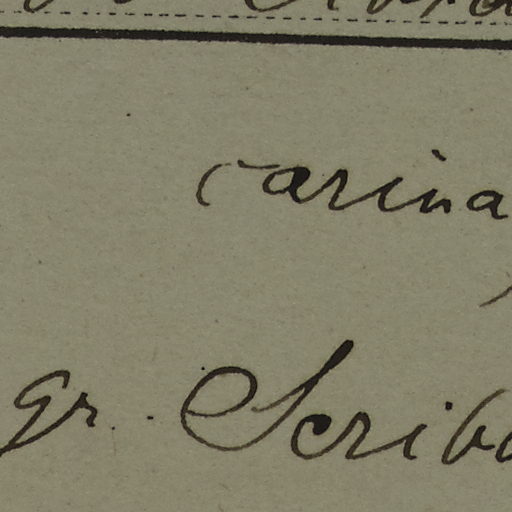 carina
gr. Scribo